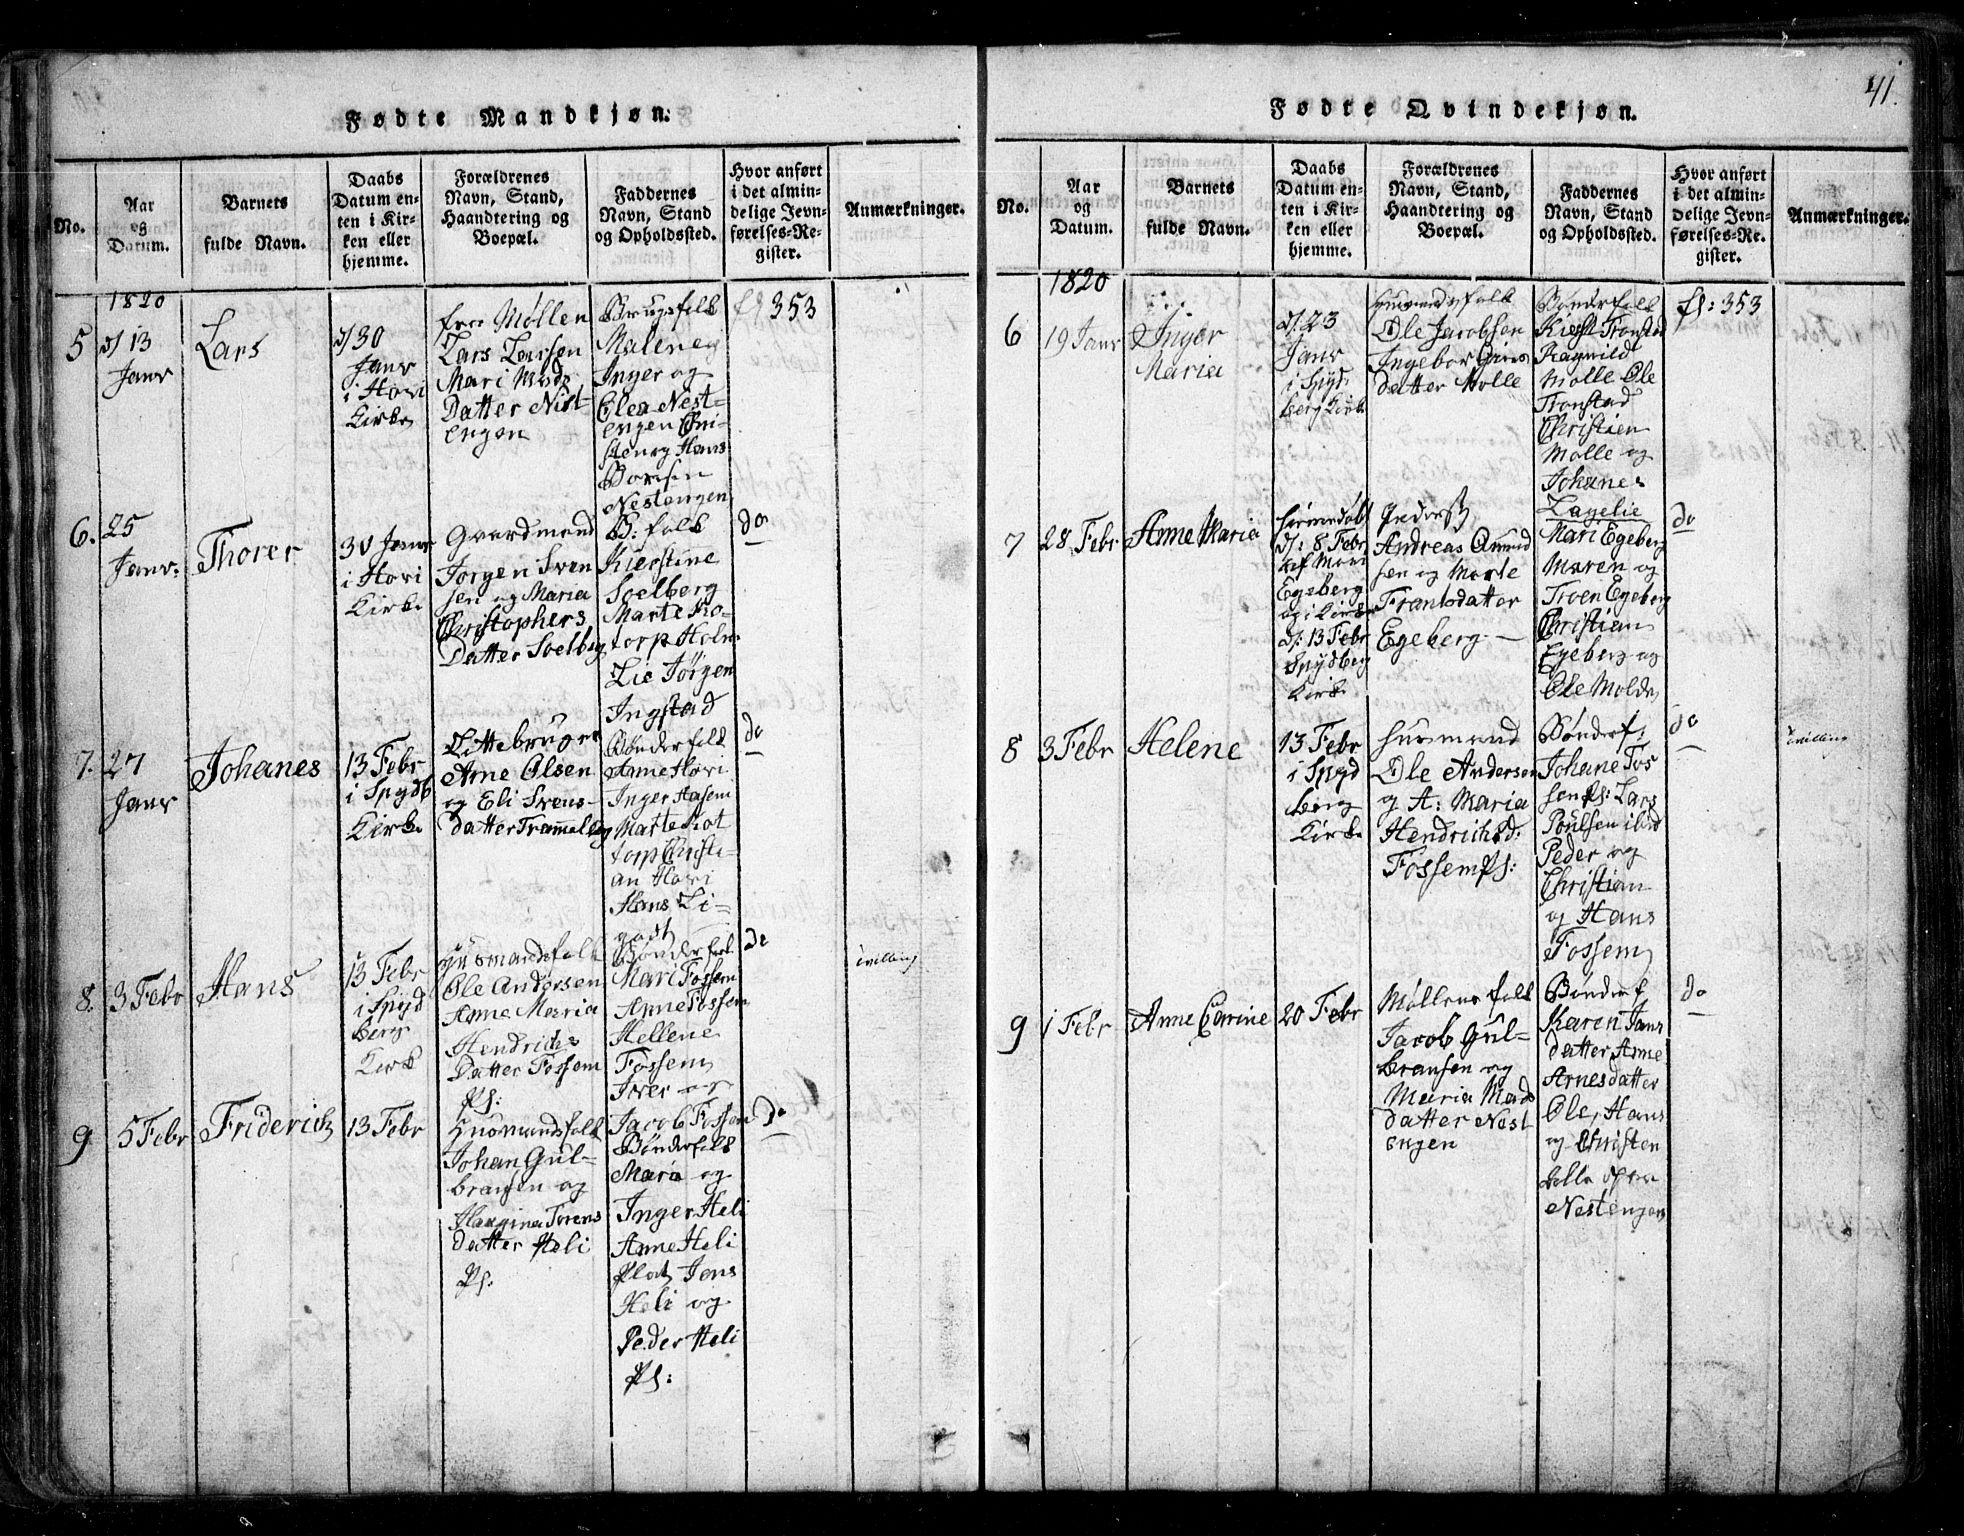 41.
Fødte Mandkjøn.
No.
Aar
og
Datum.
Barnets
fulde Navn.
Daabs
Datum en-
ten i Kir-
ken eller
hjemme.
Forældrenes
Navn, Stand,
Haandtering og
Boepæl.
Faddernes
Navn, Stand
og Opholdssted.
Hvor anført
i det almin-
delige Jevn-
førelses-Re-
gister.
Anmærkninger.
1820
5
d/ 13
Janr
Lars
d/ 30
Janr
i Hovi
Kirke
Møllen
Lars Larsen
Mari Mads
Datter Nest-
engen
Brugsfolk
Inger og
Nest-
engen
Hans
Nestengen
353
6.
25
Janr.
Thorer
30 Janr
i Hovi
Kirke
Gaardmand
Jørgen Sven
sen og Maria
Christophers
Datter Soelberg
B: folk
Kierstine
Soelberg
Marte Ro-
torp Holm
Lie Jørgen
Ingstad
do
7.
27
Janr
Johanes
13 Febr
i Spydb
Kirke
Arne Olsen
og Eli Svens-
datter
Bønderfolk
Anne Hovi
Inger
Marte Rot
torp Christi-
an Hovi
Hans Li-
do
8.
3 Febr
Hans
13 Febr
i Spyd
berg
Kirk
Huusmandsfolk
Ole Andersen
Anne Maria
Hendrichs
Datter Fossem
Pl:
Bønderfolk
Mari Fossem
Anne Fossem
Hellene
Fossem
Iver og
Jacob Fossem
do
tvilling
9
5 Febr
Friderich
13 Febr
Huusmandsfolk
Johan Gul-
bransen og
Torens
datter Heli
Pl:
Bønderfolk
Maria og
Inger Heli
Anne Heli
Plads Jens
Heli og
Peder Heli
Pl:
do
Fødte Qvindekjøn.
No.
Aar
og
Datum.
Barnets
fulde Navn.
Daabs
Datum en-
ten i Kir-
ken eller
hjemme.
Forældrenes
Navn, Stand,
Haandtering og
Boepæl.
Faddernes
Navn, Stand
og Opholdssted.
Hvor anført
i det almin-
delige Jevn-
førelses-Re-
gister.
Anmærkninger.
1820
6
19 Janr
Inger
Maria
d/. 23
Janr
i Spyd
berg Kirke
Huusmandsfolk
Ole Jacobsen
Ingebor
datter Molle
Bønderfolk
Kiersti Tronstad
Ragnild
Molle Ole
Tronstad
Christien
Molle og
Johanes
Lagelie
fl: 353
7
28 Febr
Anne Maria
d/: 8 Febr
af
Egeberg
og i Kirken
d/: 13 Febr
Spydberg
Kirke
Andreas
sen og Marte
Frantsdatter
Egeberg —
Mari Egeberg
Maren og
Egeberg
Christian
Egeberg og
Ole Molde
do
8
3 Febr
Helene
13 Febr
i Spyd
berg
Kirke
Huusmand
Ole Andersen
og A: Maria
Hendrichsd:
Fossem Pl:
Bønderf:
Johane Fos
sem Pl: Lars
Poulsen ibid
Peder og
Christian
og Hans
Fossem
do
tvilling
9
1 Febr
Anne Carine
20 Febr
Møllens folk
Jacob Gul-
bransen og
Maria Mads
datter Nest
engen
Bønderf
Karen Jans
datter Anne
Arnesdatter
Ole, Hans
og Christen
alle
Nestengen
do